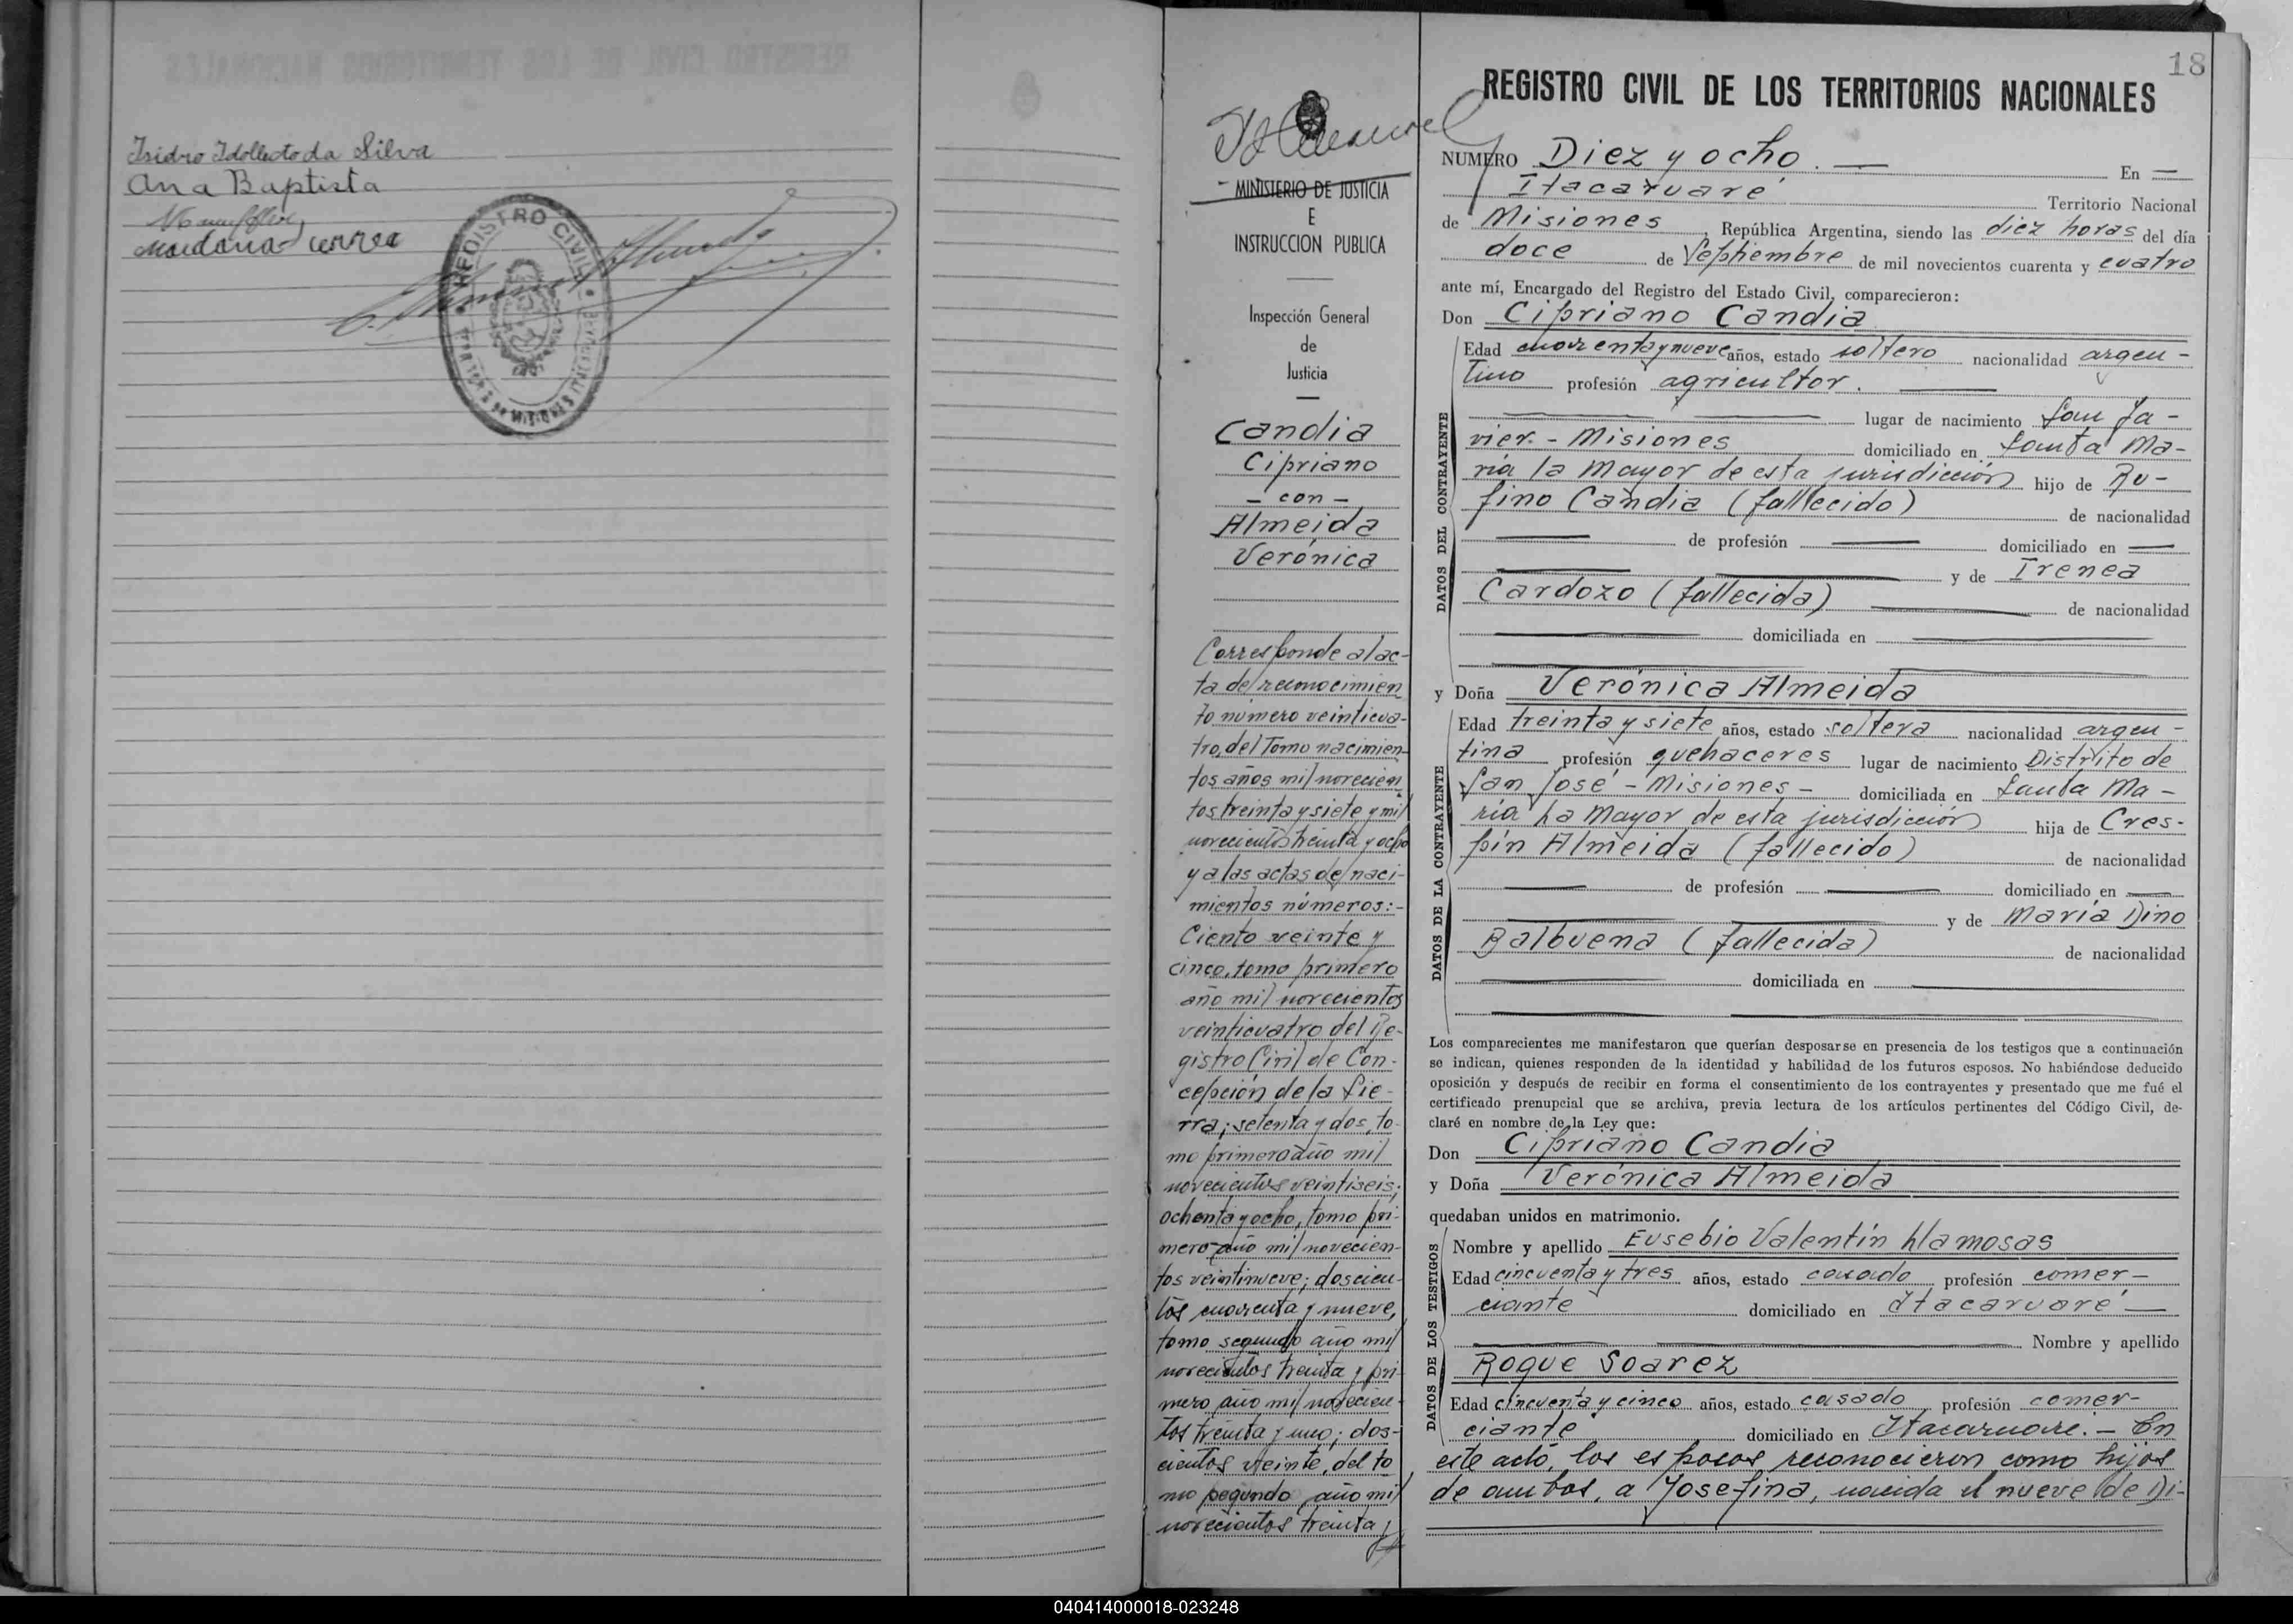 Isidro Idollecto da Silva
Ana Baptista
REGISTRO CIVIL
18
REGISTRO CIVIL DE LOS TERRITORIOS NACIONALES
MINISTERIO DE JUSTICIA
E
INSTRUCCION PUBLICA
Inspección General
de
Justicia
Candia
Cipriano
- con -
Almeida
Verónica
Corresponde al ac-
ta de reconocimien
to número veinticua-
tro, del Tomo nacimien-
tos años mil novecien
tos treinta y siete y mil
novecientos treinta y ocho
y a las actas de naci-
mientos números:-
Ciento veinte y
cinco, tomo primero
año mil novecientos
veinticuatro del Re-
gistro Civil de Con-
cepción de la Sie-
rra; setenta y dos, to-
mo primero año mil
novecientos veintiseis;
ochenta y ocho, tomo pri-
mero año mil novecien-
tos veintinueve; doscien-
tos cuarenta y nueve,
tomo segundo año mil
novecientos treinta y pri-
mero año mil novecien-
tos treinta y uno; dos-
cientos veinte, del to
mo segundo, año mil
novecientos treinta y
NUMERO Diez y ocho. — En —
Itacaruaré Territorio Nacional
de Misiones, República Argentina, siendo las diez horas del día
doce de Septiembre de mil novecientos cuarenta y cuatro
ante mí, Encargado del Registro del Estado Civil, comparecieron:
Don Cipriano Candia
DATOS DEL CONTRAYENTE
Edad cuarenta y nueve años, estado soltero nacionalidad argen-
tino profesión agricultor. —
lugar de nacimiento San Ja-
vier - Misiones domiciliado en Santa Ma-
ría la Mayor de esta jurisdicción hijo de Ru-
fino Candia (fallecido) de nacionalidad
— de profesión — domiciliado en —
— y de Irenea
Cardozo (fallecida) — de nacionalidad
— domiciliada en —
y Doña Verónica Almeida
DATOS DE LA CONTRAYENTE
Edad treinta y siete años, estado soltera nacionalidad argen-
tina profesión quehaceres lugar de nacimiento Distrito de
San José - Misiones - domiciliada en Santa Ma-
ría La Mayor de esta jurisdicción hija de Cres-
pín Almeida (fallecido) de nacionalidad
— de profesión — domiciliado en —
— y de María Dino
Balbuena (fallecida) de nacionalidad
— domiciliada en —
Los comparecientes me manifestaron que querían desposarse en presencia de los testigos que a continuación
se indican, quienes responden de la identidad y habilidad de los futuros esposos. No habiéndose deducido
oposición y después de recibir en forma el consentimiento de los contrayentes y presentado que me fué el
certificado prenupcial que se archiva, previa lectura de los artículos pertinentes del Código Civil, de-
claré en nombre de la Ley que:
Don Cipriano Candia
y Doña Verónica Almeida
quedaban unidos en matrimonio.
DATOS DE LOS TESTIGOS
Nombre y apellido Eusebio Valentín Llamosas
Edad cincuenta y tres años, estado casado profesión comer-
ciante domiciliado en Itacaruaré —
— Nombre y apellido
Roque Soarez
Edad cincuenta y cinco años, estado casado profesión comer-
ciante domiciliado en Itacaruaré. - En
este acto, los esposos reconocieron como hijos
de ambos, a Josefina, nacida el nueve de Di-
040414000018-023248